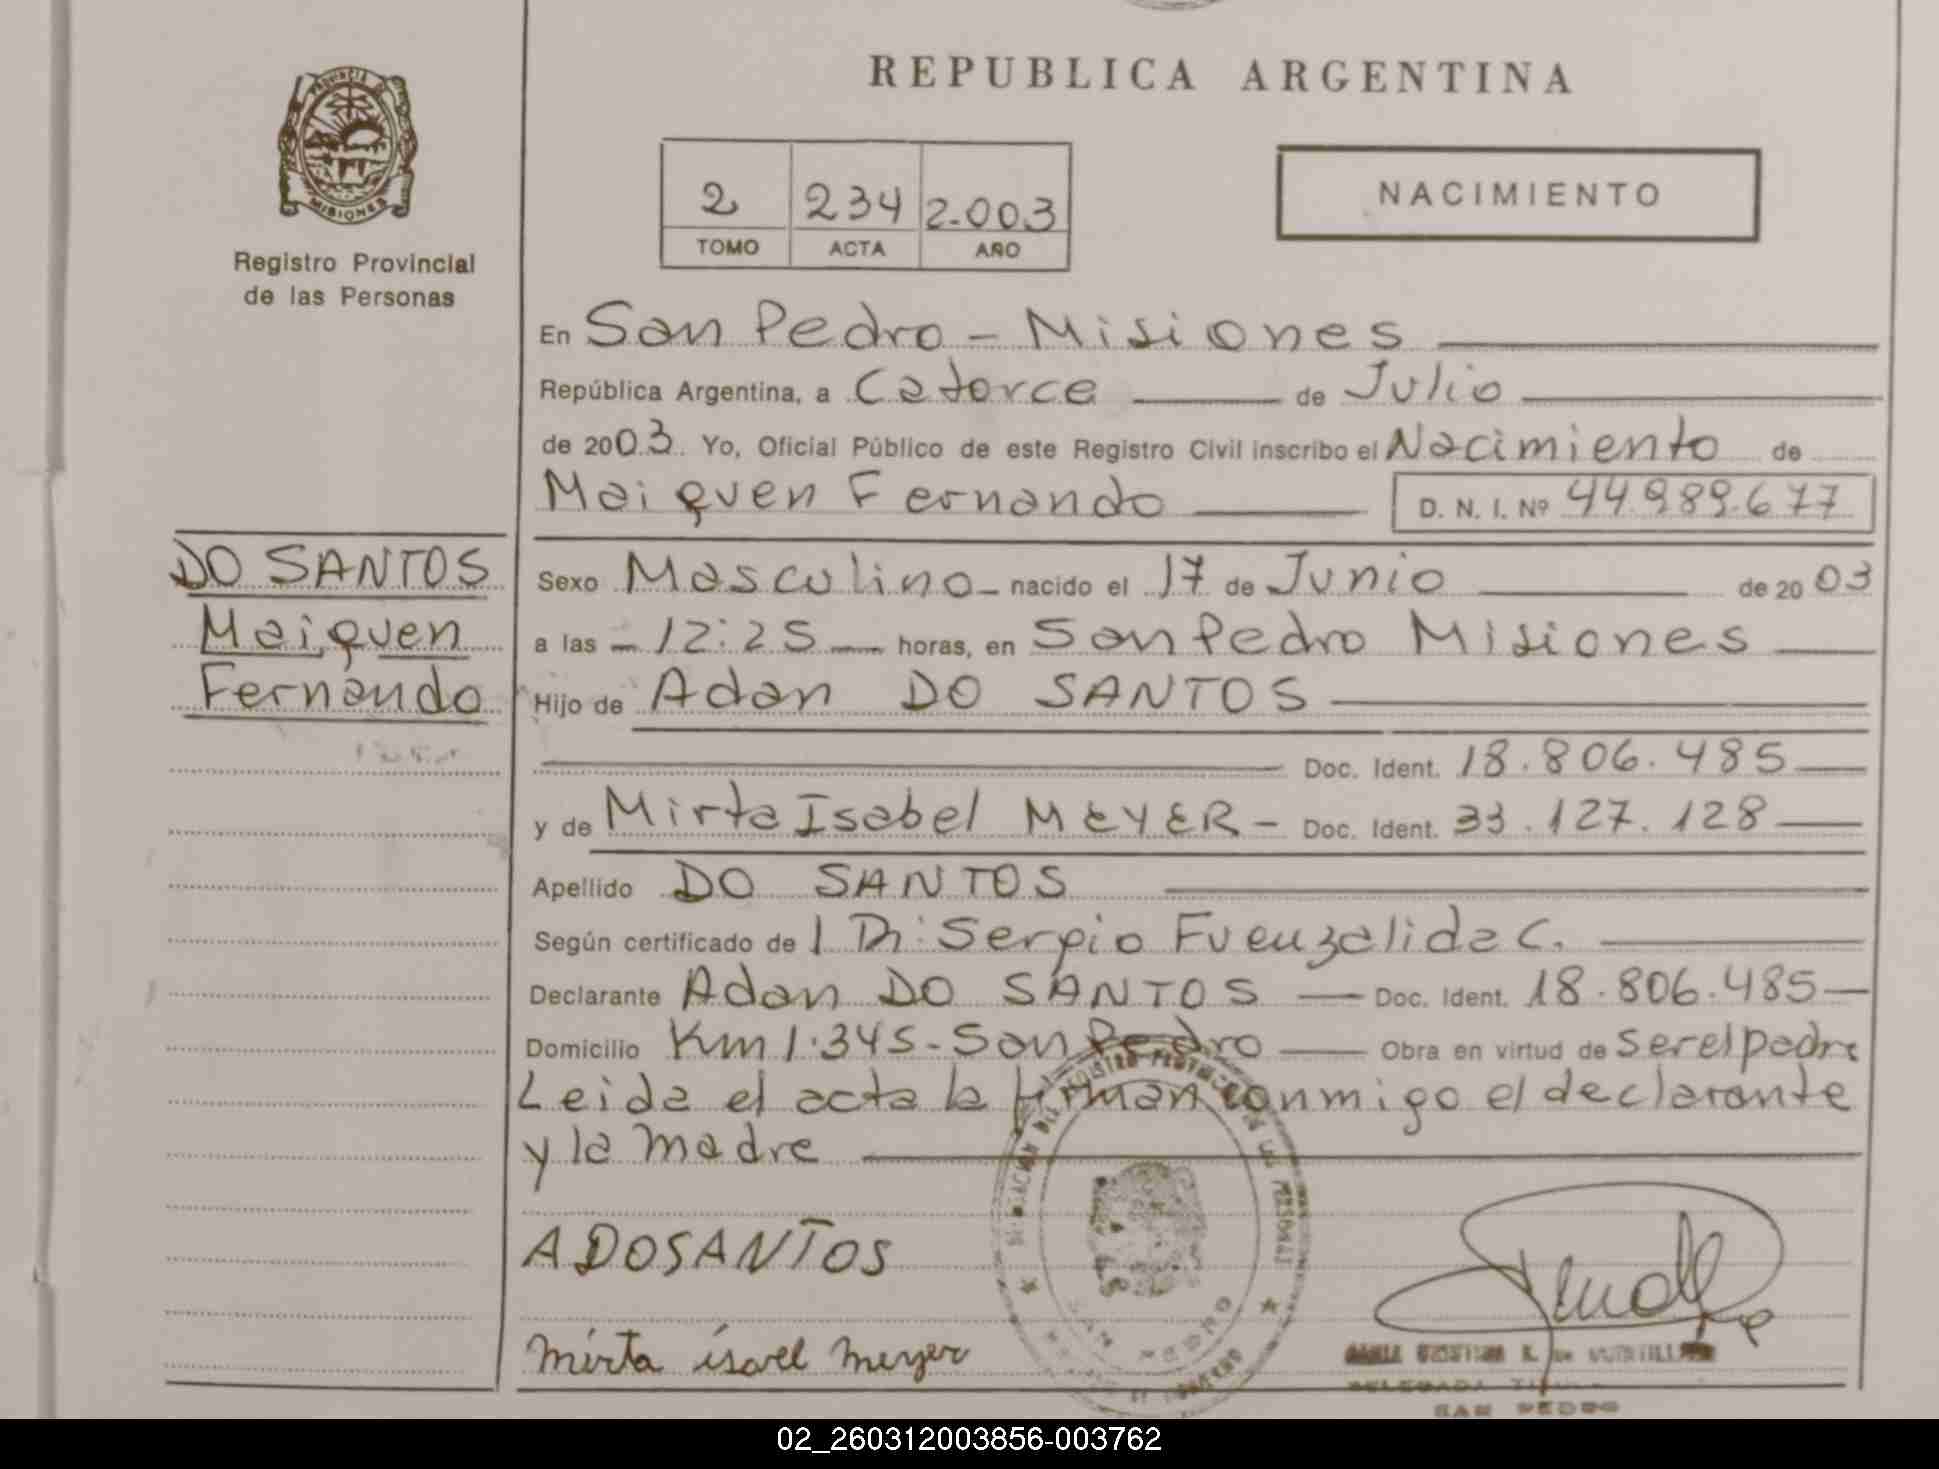 REPUBLICA ARGENTINA
PROVINCIA DE
MISIONES
Registro Provincial
de las Personas
2 234 2.003
TOMO ACTA AÑO
NACIMIENTO
En San Pedro - Misiones
República Argentina, a Catorce de Julio
de 2003. Yo, Oficial Público de este Registro Civil inscribo el Nacimiento de
Maiquen Fernando D. N. I. Nº 44.989.677
DO SANTOS
Maiquen
Fernando
Sexo Masculino nacido el 17 de Junio de 2003
a las - 12:25 - horas, en San Pedro Misiones
Hijo de Adan DO SANTOS
Doc. Ident. 18.806.485
y de Mirta Isabel MEYER - Doc. Ident. 33.127.128
Apellido DO SANTOS
Según certificado de Sergio Fuenzalida C.
Declarante Adan DO SANTOS - Doc. Ident. 18.806.485
Domicilio Km 1.345 - San Pedro - Obra en virtud de ser el padre
Leida el acta la firman conmigo el declarante
y la madre
A DOSANTOS
mirta isavel meyer
SAN PEDRO
SAN PEDRO
02_260312003856-003762